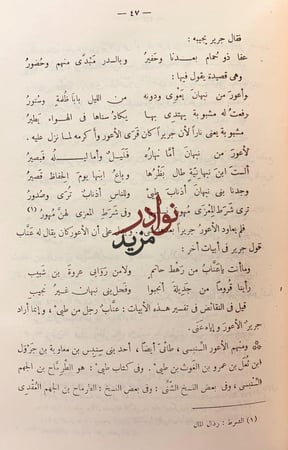 — ٤٧ —
فقال جرير يجيبه :
عفا ذو حمام بعدنا وحفير وبالسدر مبدى منهم وحضور
وهى قصيدة يقول فيها :
وأعور من نبهان يعوى ودونه من الليل بابا ظلمة وستور
رفعت له مشبوبة يهتدى بها يكاد سناها فى الهواء يطير
مشبوبة يعنى ناراً لأن جريراً كان قرى الأعور وأكرمه لما نزل عليه .
لأعور من نبهان أما نهاره وأما ليله فبصير
ألست ابن نبهانية طال بظرها وباع ابنها يوم الحفاظ قصير
وجدنا بنى نبهان أذناب طيئ وللناس أذناب ترى وصدور
ترى شرط المعزى مهور وفى شرط المعزى لهن مهور (١)
نوادر
مزيد
فلم يعاود الأعور على أن الأعور كان يقال له عناب
قول جرير فى أبيات أخر :
وما أنت يا عناب من رهط حاتم ولا من روابى عروة بن شبيب
رأينا قروماً من جديلة أنجبوا وفحل بنى نبهان غير نجيب
قيل فى النقائض فى تفسير هذه الأبيات : عناب رجل من طيئ ، وإنما أراد
جرير الأعور وإياه عنى .
ومنهم الأعور السنبسى ، طائى أيضاً ، أحد بنى سنبس بن معاوية بن جرول
ابن ثعل بن عمرو بن الغوث بن طيئ . وفى كتاب طيئ : هو الطرماح بن الجهم
السنبسى ، وفى بعض النسخ : وفى بعض النسخ : الطرماح بن الجهم العقدى
(١) الشرط : رذال المال